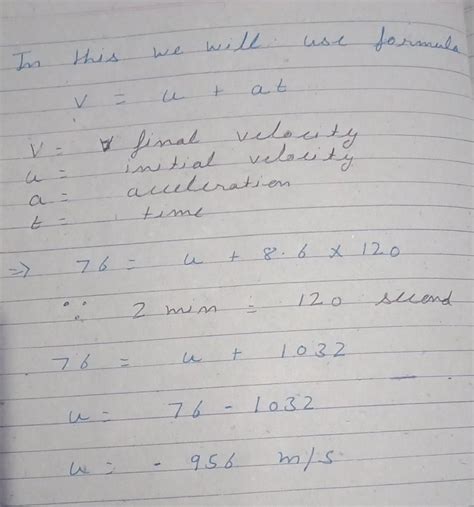 In this we will use formula
v = u + at
v = final velocity
u = initial velocity
a = acceleration
t = time
⇒ 76 = u + 8.6 × 120
∵ 2 min = 120 second
76 = u + 1032
u = 76 - 1032
u = - 956 m/s.